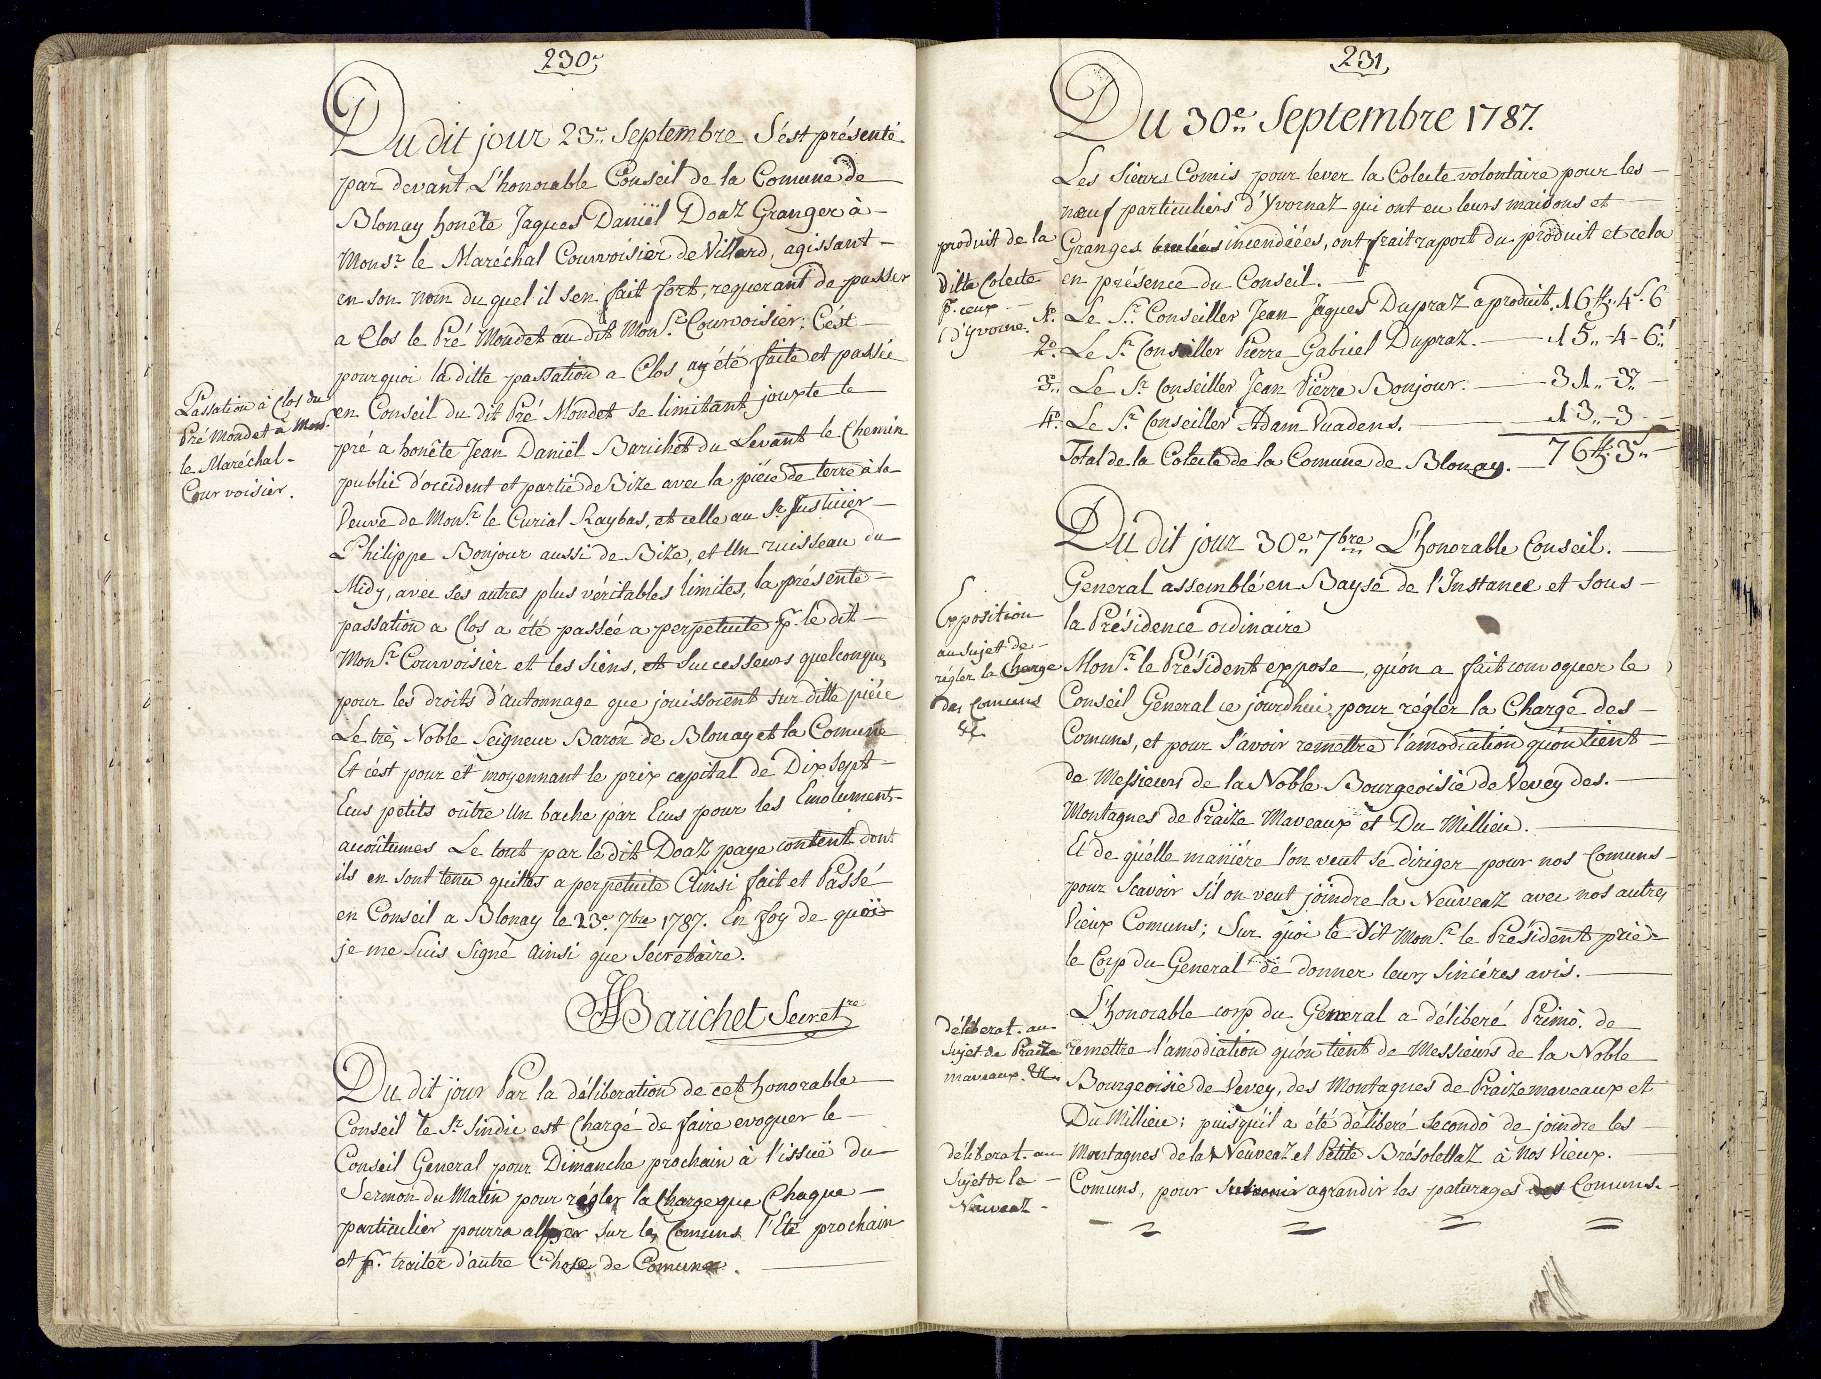 230.
Du dit jour 23.e Septembre S'est présenté
par devant L'honorable Conseil de la Comune de
Blonay honête Jaques Daniël Doaz Granger à
Mons.r le Maréchal Courvoisier de Villard, agissant
en son nom du quel il s'en fait fort, requerant de passer
a Clos le Pré Mondet au dit Mons.r Courvoisier; C'est
pourquoi la ditte passation a Clos ay été faite et passée
en Conseil du dit Pré Mondet se limitant jouxte le
pré a honête Jean Daniël Barichet du Levant le Chemin
public d'occident et partie de Bize avec la piéce de terre à la
Veuve de Mons.r le Curial Raybas, et celle au Sr. Justicier
Philippe Bonjour aussi de Bize, et Un ruisseau du
Midy, avec ses autres plus véritables limites, la présente
passation a Clos a été passée a perpetuite p.r le dit
Mons.r Courvoisier et les Siens, et Successeurs quelconques
pour les droits d'autonnage que jouissoient sur ditte piéce
Le très Noble Seigneur Baron de Blonay et la Comune
Et c'est pour et moyennant le prix capital de Dix Sept
Ecus petits oûtre Un bache par Ecus pour les Emoluments
acoûtumes Le tout par le dit Doaz paye content dont
ils en sont tenu quittes a perpetuite Ainsi fait et Passé
en Conseil a Blonay le 23.e 7bre 1787. En foy de quoi
je me Suis Signé ainsi que Secretaire.
JBarichet Secret.re
Passation à Clos du
Pré Mondet à Mons.r
le Maréchal
Courvoisier.
Du dit jour Par la déliberation de cet honorable
Conseil le Sr. Sindic est Chargé de faire evoquer le
Conseil General pour Dimanche prochain à l'issuë du
Sermon du Matin pour régler la Charge que Chaque
particulier pourra alper sur les Comuns l'Eté prochain
et p.r traiter d'autre Chose de Comune.
231
Du 30.e Septembre 1787.
Les Sieurs Comis pour lever la Colecte volontaire pour les
nœuf particuliers d'Yvornaz qui ont eu leurs maisons et
Granges incendiées, ont fait raport du produit et cela
en présence du Conseil.
1.o Le Sr. Conseiller Jean Jaques Dupraz a produit. 16 ℔. 4 s. 6
2.o Le Sr. Conseiller Pierre Gabriel Dupraz. 15 „ 4 - 6 „
3.o Le Sr. Conseiller Jean Pierre Bonjour. 31 „ - 3 „
4.o Le Sr. Conseiller Adam Vuadens. 13 „ - 3
Total de la Colecte de la Comune de Blonay. 76 ℔. 3 „
produit de la
ditte Colecte
p.r ceux
d'Yvorne.
Du dit jour 30.e 7bre L'honorable Conseil.
General assemblé en Baysé de l'Instance et sous
la Présidence ordinaire
Mons.r le Président expose, qu'on a fait convoquer le
Conseil General ce jourdhui pour régler la Charge des
Comuns, et pour s'avoir remettre l'amodiation qu'on tient
de Messieurs de la Noble Bourgeoisie de Vevey des.
Montagnes de Praize Maveaux et Du Millieu.
Et de quelle maniére l'on veut se diriger pour nos Comuns
pour Scavoir s'il on veut joindre la Neuveaz avec nos autres
Vieux Comuns; Sur quoi le dit Mons.r le Président prie
le Corp du General de donner leurs Sincéres avis.
Exposition
au sujet de
régler la Charge
des Comuns
&c.
L'honorable corp du General a déliberé Primò. de
remettre l'amodiation qu'on tient de Messieurs de la Noble
Bourgeoisie de Vevey, des Montagnes de Praizemaveaux et
Du Millieu; puisqu'il a été déliberé Secondò de joindre les
Montagnes de la Neuveaz et Petite Brésolettaz à nos Vieux.
Comuns, pour agrandir les paturages des Comuns.
déliberat. au
sujet de Praize
maveaux. &c.
déliberat. au
sujet de la
Neuveaz